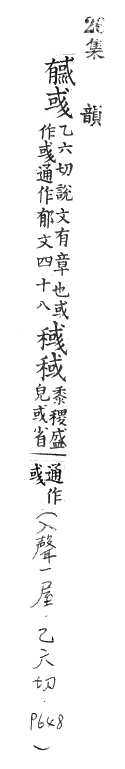 26
集韻
䫻彧乙六切說文有章也或
作彧通作郁文四十八
稢稶黍稷盛
皃或省
通作
彧
(入聲一屋.乙六切.
P648)